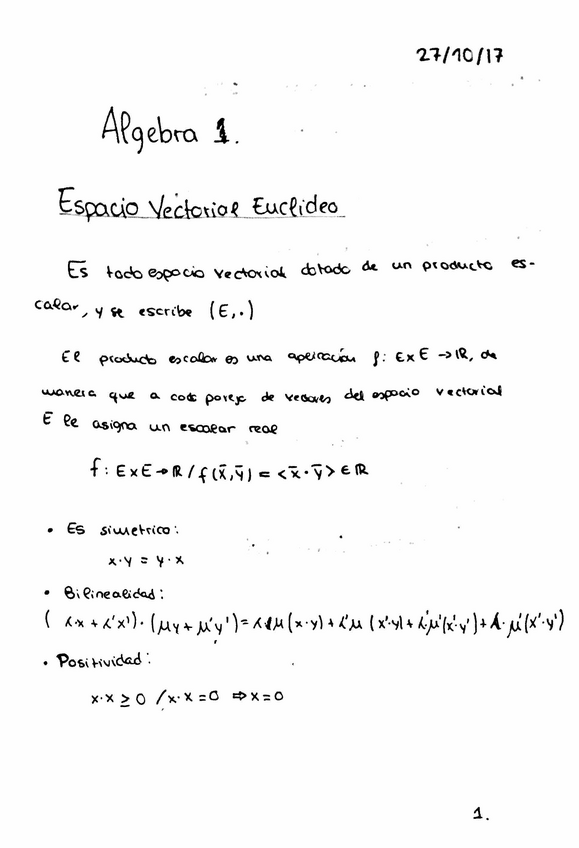 27/10/17
Algebra 1.
Espacio Vectorial Euclideo
Es todo espacio vectorial dotado de un producto es-
calar, y se escribe (E,·)
El producto escalar es una operación f: E×E → ℝ, de
manera que a cada pareja de vectores del espacio vectorial
E le asigna un escalar real
f: E×E → ℝ / f(x̄,ȳ) = <x̄·ȳ> ∈ ℝ
• Es simetrico:
x·y = y·x
• Bilinealidad:
( λ·x + λ'x')·(μy + μ'y') = λμ(x·y) + λ'μ (x'·y) + λ'μ'(x'·y') + λ·μ'(x'·y')
• Positividad:
x·x ≥ 0 / x·x = 0 ⇒ x = 0
1.